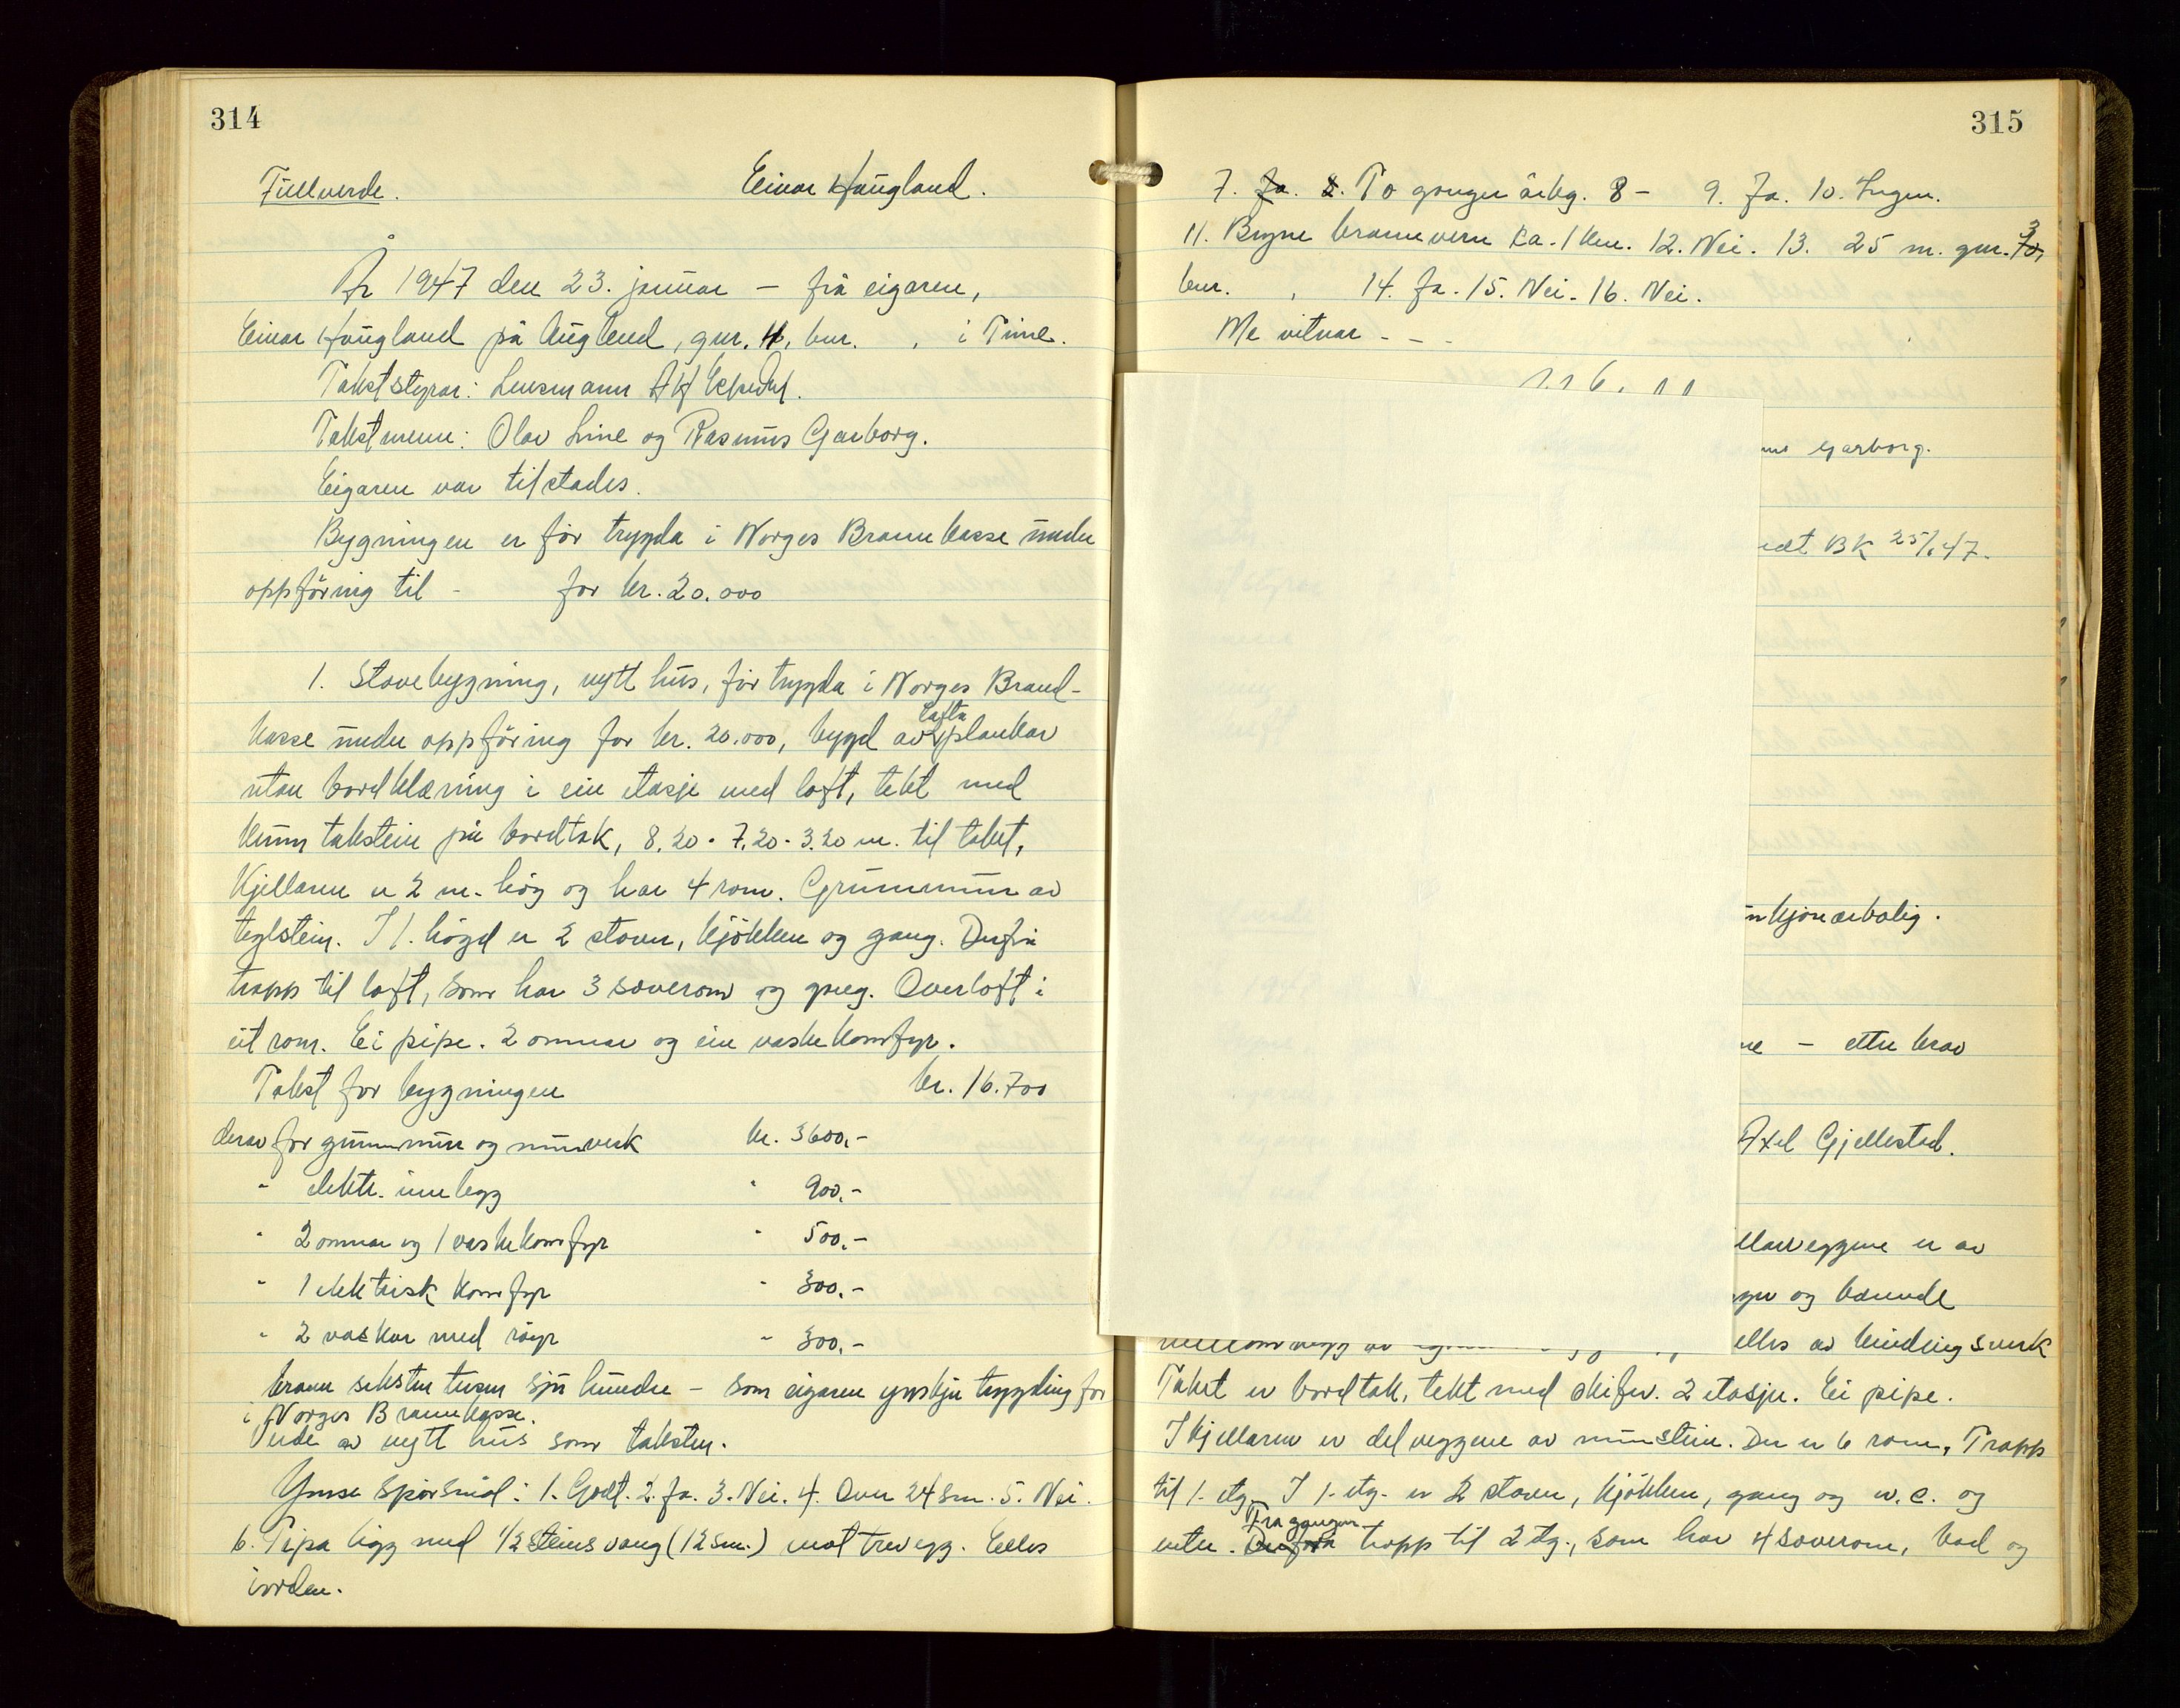 314
Fullverde. Einar Haugland.
År 1947 den 23. januar – frå eigaren,
Einar Haugland på Auglend, gnr. 4, bnr. , i Time.
Takststyrar: Lensmann
Takstmenn: Olav Line og Rasmus Garborg.
Eigaren var tilstades.
Bygningen er før trygda i Norges Brannkasse under
oppføring til – for kr. 20.000
1. Stovebygning, nytt hus, før trygda i Norges Brand-
kasse under oppføring for kr. 20.000, bygd av lafta plankar
utan bordklæning i ein etasje med loft, tekt med
krum takstein på bordtak, 8.20 · 7.20 · 3.20 m. til taket,
Kjellaren er 2 m. høg og har 4 rom. Grunnmur av
teglstein. I 1. høgd er 2 stover, kjøkken og gang. Derfrå
trapp til loft, som har 3 soverom og gang. Overloft i
eit rom. Ei pipe. 2 omnar og ein vaskekomfyr.
Takst for bygningen kr. 16.700
derav for grunnmur og murverk kr. 3600.-
" elektr. innlegg " 900.-
" 2 omnar og 1 vaskekomfyr " 500.-
" 1 elektrisk komfyr " 300.-
" 2 vaskar med røyr " 300.-
kronor seksten tusen sju hundre – som eigaren ynskjer trygding for
i Norges Brannkasse.
Verde av nytt hus som taksten.
Ymse spørsmål: 1. Godt. 2. Ja. 3. Nei. 4. Over 24 sm. 5. Nei.
6. Pipa ligg med 1/2 steins vang (12 sm.) mot trevegg. Elles
iorden.
315
7. Ja. 8. To gonger årleg. 8 – 9. Ja. 10. Ingen.
11. Bryne brannvern ca. 1 km. 12. Nei. 13. 25 m. gnr. 3
bnr. , 14. Ja. 15. Nei. 16. Nei.
Me vitnar - - -
Garborg.
BK 25/1 47.
ve – etter krav
Axel Gjellestad.
llarveggene er av
og berande
elles av bindingsverk
Taket er bordtak, tekt med skifer. 2 etasjer. Ei pipe.
I kjellaren er delveggene av murstein. Der er 6 rom, Trapp
til 1. etg. I 1. etg. er 2 stover, kjøkken, gang og w.c. og
Fra gangen
entre. Derfrå trapp til 2 etg., som har 4 soverom, bad og